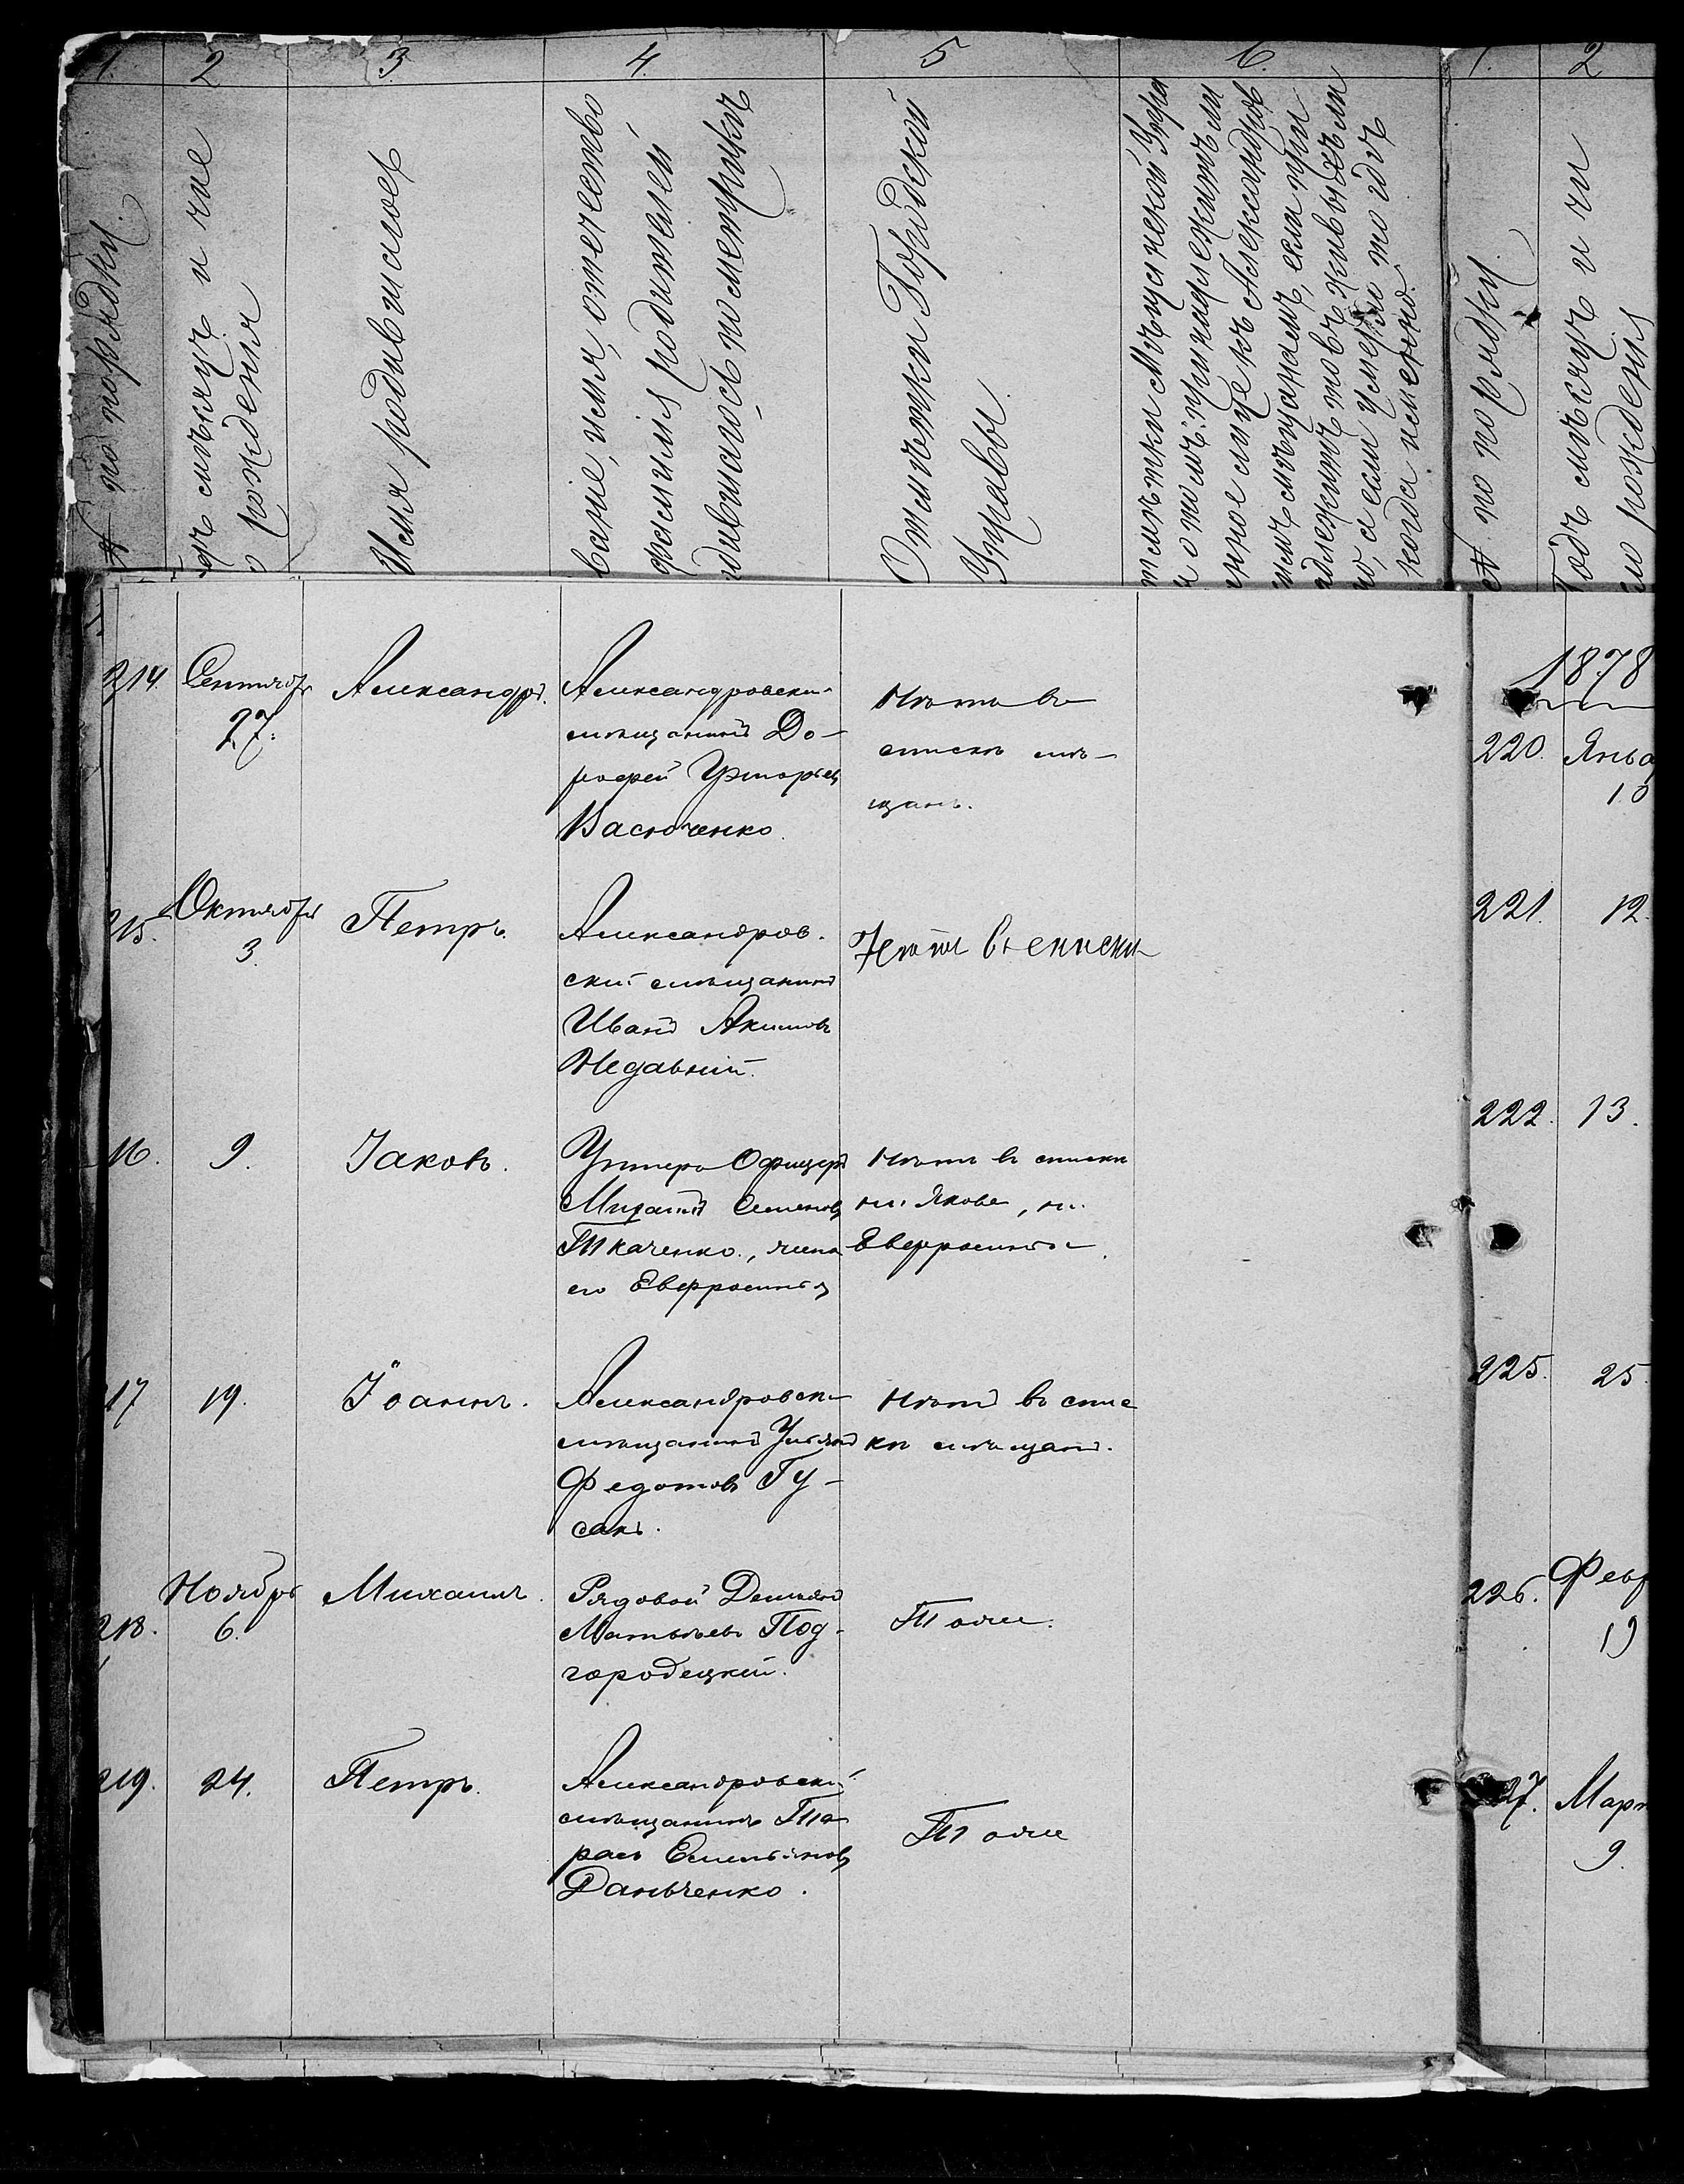 1. 2 3 4. 5 6. 1. 2
№ по порядку.
годъ мѣсяцъ и чис
ло рожденія
Имя родившагося
Званіе, имя, отечество
фамилія родителей
родившагося по метрикѣ
Отмѣтки Городской
Управы.
Отмѣтки Мѣщанской Упра
вы о томъ: принадлежитъ ли
лице къ Александров
скимъ мѣщанамъ, если при
надлежитъ то въ живыхъ ли
оно, а если умеръ то гдѣ
когда именно.
№ по порядку.
Годъ мѣсяцъ и чи
сло рожденія
214. Сентября
27.
Александръ.
Александровскій
мѣщанинъ До-
рофей Григорьевъ
Васюченко.
Нѣтъ въ
спискѣ мѣ-
щанъ.
215. Октября
3.
Петръ.
Александров-
скій мѣщанинъ
Иванъ Акимовъ
Недавній.
Нетъ въ списки
16. 9. Іаковъ.
Унтеръ Офицеръ
Михаилъ Семеновъ
Ткаченко, жена
его Евфросинія
Нѣтъ въ списки
ни Якова, ни
Евфросиніи.
17 19. Іоаннъ.
Александровскій
мѣщанинъ Ульянъ
Федотовъ Гу-
сакъ.
Нѣтъ въ спис
кѣ мѣщанъ.
218. Ноября
6.
Михаилъ.
Рядовой Демьянъ
Матвѣевъ Под-
городецкій.
Тоже.
219. 24. Петръ.
Александровскій
мѣщанинъ Та-
расъ Емельяновъ
Даньченко.
Тоже
1878
220. Янва
10
221. 12.
222. 13.
225. 25.
226. Февр
19
27. Март
9.